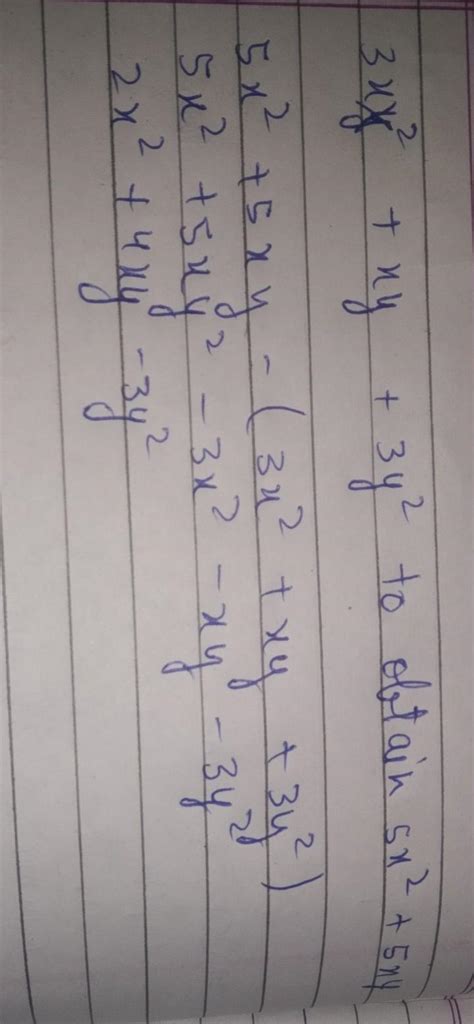 3xy² + xy + 3y² to obtain 5x² + 5xy
5x² + 5xy - (3x² + xy + 3y²)
5x² + 5xy² - 3x² - xy - 3y²
2x² + 4xy - 3y²